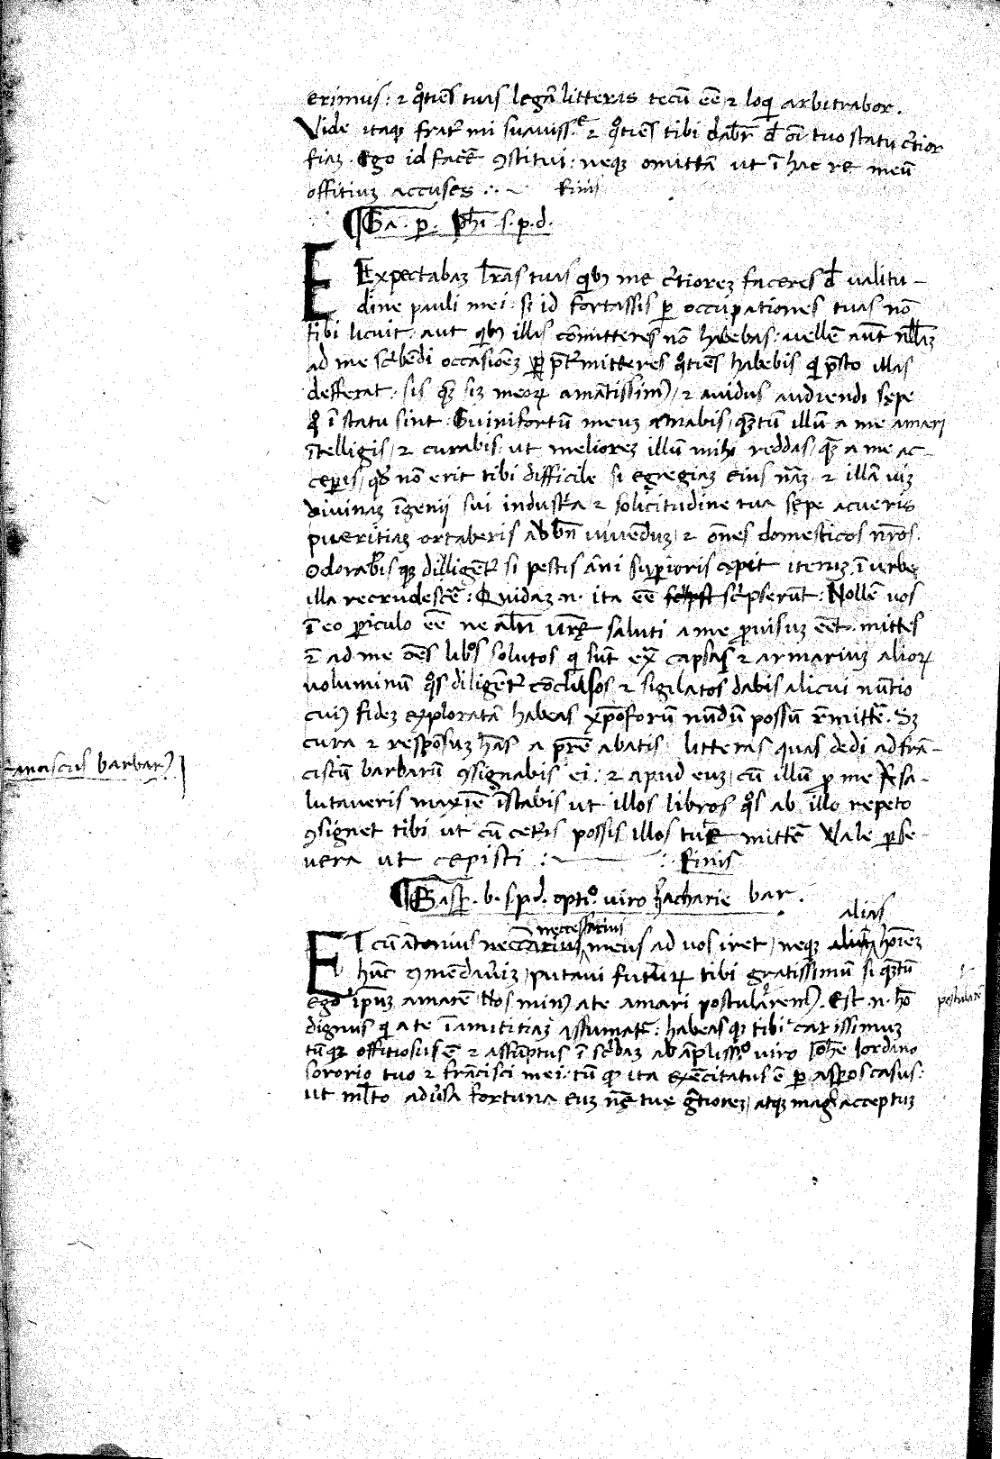 erimus: ⁊ q̊tiēs tuas legā litteras tecū eē ⁊ loqi arbitrabor.
Vide itaqꝫ frat̄ mi suauiss.ᵉ ⁊ q̊tiēs tibi dab̄r d̄ oī tuo statu c̄tior
fiaꝫ. Ego id facē ꝯstitui: neqꝫ omittā ut ī hac re meū
offitiuꝫ accuses. Finis
¶ Ga. p. Phī. s. p. d.
Expectabaꝫ l̄ras tuas qibꝫ me c̄tioreꝫ faceres d̄ valitu-
dine pauli mei: sꝫ id fortassis ꝑ occupationes tuas nō
tibi licuit: aut qibꝫ illas cōmitteres nō habebas: uellē aūt nullaꝫ
ad me sc̄bēdi occasionēꝫ p̄t̄mitteres q̊tiēs habebis qi p̄sto illas
defferat: sis qꝫ siꝫ meoꝝ amātissimꝰ, ⁊ auidus audiendi sępe
qo ī statu sint. Guinifortū meuꝫ amabis, qꝫtū illū a me amari
ītelligis, ⁊ curabis, ut melioreꝫ illū mihi reddas, qꝫ a me ac-
ceperis, qd̄ nō erit tibi difficile si egregiaꝫ eius nāꝫ ⁊ illā uiꝫ
diuinaꝫ īgenii sui industria ⁊ solicitudine tua sepe acueris
pueritiaꝫ ortaberis ad bn̄ uiuēduꝫ, ⁊ oēs domesticos nr̄os.
Odorabisqꝫ diligēt̄ si pestis āni superioris cępit iteruꝫ ī urbe
illa recrudescē̄: Quidaꝫ .n. ita eē sc̄pserūt: Nollē uos
ī eo ꝑiculo eē ne al̄ri ur̄ꝝ saluti a me prouisuꝫ eēt. mittes
ad me oēs libꝭos solutos qi sūt ext̄ capsas ⁊ armariuꝫ alioꝝ
uoluminū q̊s diligēt̄ cōclusos ⁊ sigilatos dabis alicui nūtio
cuiꝰ fideꝫ exploratā habeas xp̄oforum nūdū possū r̄mittē. Sꝫ
cura ⁊ respōsuꝫ h̄as a p̄rē abatis: litteras quas dedi ad frā-
ciscū barbarū ꝯsignabis ei: ⁊ apud euꝫ, cū illū pro me sa-
lutaueris maxīe īstabis ut illos libros q̊s ab illo repeto
ꝯsignet tibi ut cū cet̄is possis illos mittē Vale ꝑse-
uera ut cepisti: Finis
franciscus barbarꝰ
¶ Gasp̄. b. s. p. d. opt.º uiro zacharie bar.
Et cū ātonius necessarius meus ad uos iret, neqꝫ alias hoīeꝫ
hūc ꝯmēdauiꝫ, putaui futuꝝ tibi gratissimū si qꝫtū
ego ipūꝫ amarē. Nos minꝰ a te amari postularē. Est .n. hō
postularē
dignus qi a te ī amicitiaꝫ assumat̄: habeas qi tibi carissimuꝫ
tūqꝫ offitiosus ē ⁊ assūptus ī sc̄baꝫ ab āplissº uiro Iohē Iordāno
sororio tuo ⁊ frācisci mei: tū qi ita exc̄citatus ē ꝑ asꝑos casus:
ut ml̄to adu̓sa fortuna euꝫ tuę gr̄tioreꝫ, atqꝫ magis acceptuꝫ